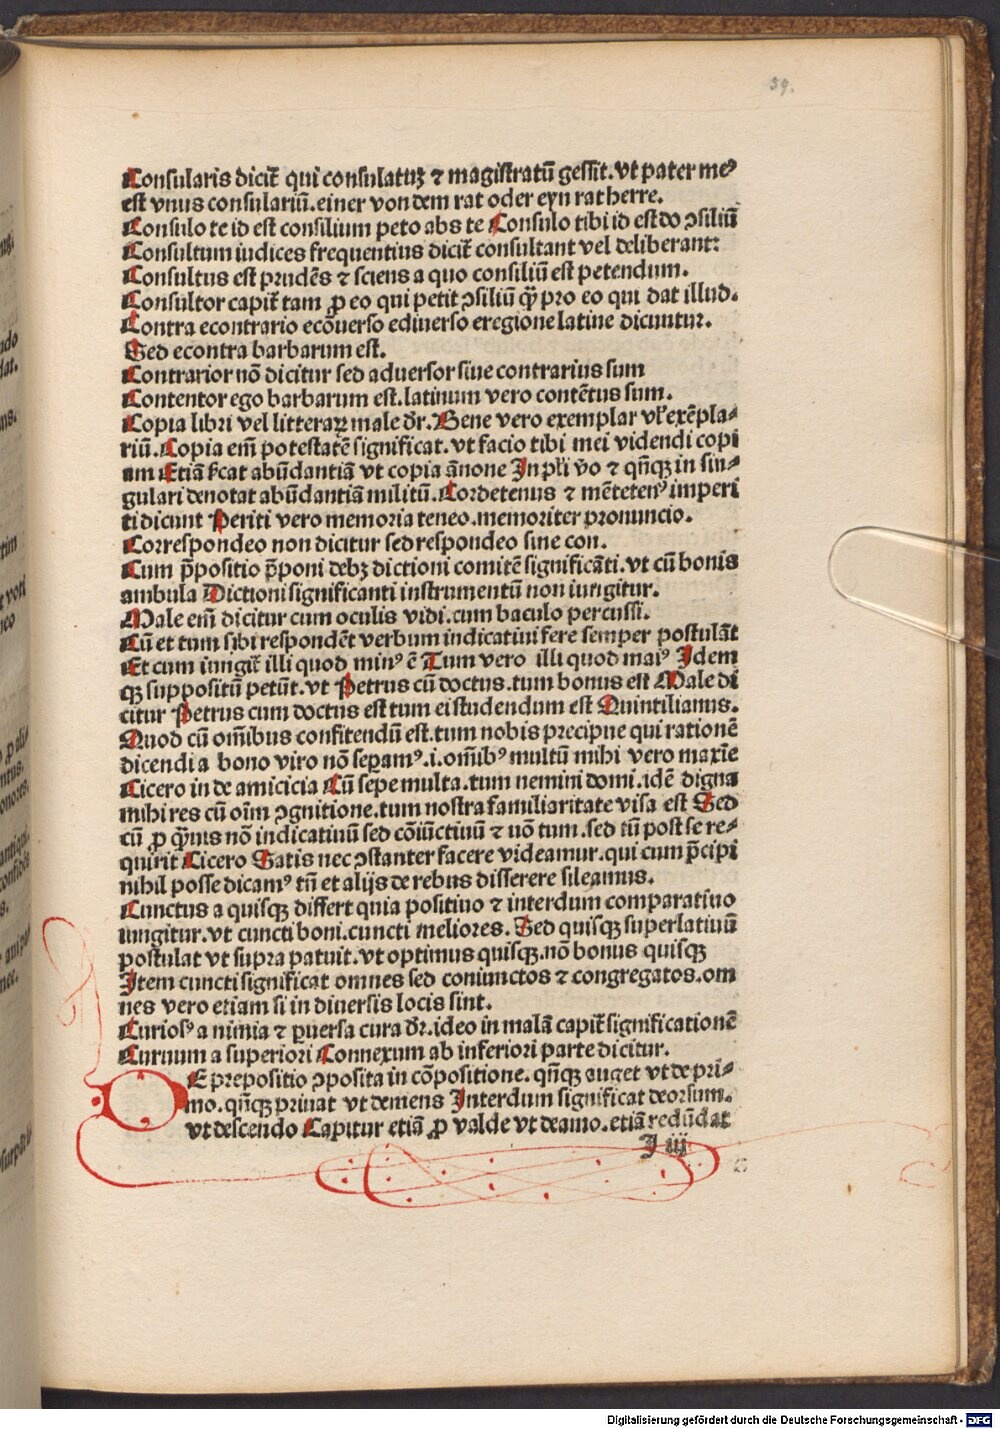 59.
Consularis dicit᷑ qui consulatuꝫ ⁊ magistratū gessit. vt pater meꝰ
est vnus consulariū. einer von dem rat oder eyn rat herre.
Consulo te id est consilium peto abs te Consulo tibi id est do ↄsiliū
Consultum iudices frequentius dicit᷑ consultant vel deliberant:
Consultus est prudēs ⁊ sciens a quo consiliū est petendum.
Consultor capit᷑ tam ꝓ eo qui petit ↄsiliū qͣꝫ pro eo qui dat illud.
Contra econtrario ecōuerso ediuerso eregione latine dicuntur.
Sed econtra barbarum est.
Contrarior nō dicitur sed aduersor siue contrarius sum
Contentor ego barbarum est. latinum vero contētus sum.
Copia libri vel litteraꝝ male dr̄. Bene vero exemplar vl̓ exēpla-
riū. Copia em̄ potestatē significat. vt facio tibi mei videndi copi
am Etiā s̄cat abūdantiā vt copia ānone In pl̓i v̓o ⁊ qn̄qꝫ in sin-
gulari denotat abūdantiā militū. Cordetenus ⁊ mētetenꝰ imperi
ti dicunt Periti vero memoria teneo. memoriter pronuncio.
Correspondeo non dicitur sed respondeo sine con.
Cum p̄positio p̄poni debꝫ dictioni comitē significāti. vt cū bonis
ambula Dictioni significanti instrumentū non iungitur.
Male em̄ dicitur cum oculis vidi. cum baculo percussi.
Cū et tum sibi respondēt verbum indicatiui fere semper postulāt
Et cum iungit᷑ illi quod minꝰ ē Tum vero illi quod maiꝰ Idem
qꝫ suppositū petūt. vt Petrus cū doctus. tum bonus est Male di
citur Petrus cum doctus est tum ei studendum est Quintilianus.
Quod cū om̄ibus confitendū est. tum nobis precipue qui rationē
dicendi a bono viro nō sepamꝰ. i. om̄ibꝰ multū mihi vero maxīe
Cicero in de amicicia Cū sepe multa. tum nemini domi. idē digna
mihi res cū oīm ↄgnitione. tum nostra familiaritate visa est Sed
cū ꝓ qͣꝫuis nō indicatiuū sed cōiūctiuū ⁊ nō tum. sed tn̄ post se re-
quirit Cicero Satis nec ↄstanter facere videamur. qui cum p̄cipi
nihil posse dicamꝰ tn̄ et alijs de rebus disserere sileamus.
Cunctus a quisqꝫ differt quia positiuo ⁊ interdum comparatiuo
iungitur. vt cuncti boni. cuncti meliores. Sed quisqꝫ superlatiuū
postulat vt supra patuit. vt optimus quisqꝫ. nō bonus quisqꝫ
Item cuncti significat omnes sed coniunctos ⁊ congregatos. om
nes vero etiam si in diuersis locis sint.
Curiosꝰ a nimia ⁊ ꝑuersa cura dr̄. ideo in malā capit᷑ significationē
Curuum a superiori Connexum ab inferiori parte dicitur.
DE prepositio ↄposita in cōpositione. qn̄qꝫ auget vt de pri-
mo. qn̄qꝫ priuat vt demens Interdum significat deorsum.
vt descendo Capitur etiā ꝓ valde vt deamo. etiā redūdat
I iij
Digitalisierung gefördert durch die Deutsche Forschungsgemeinschaft - DFG